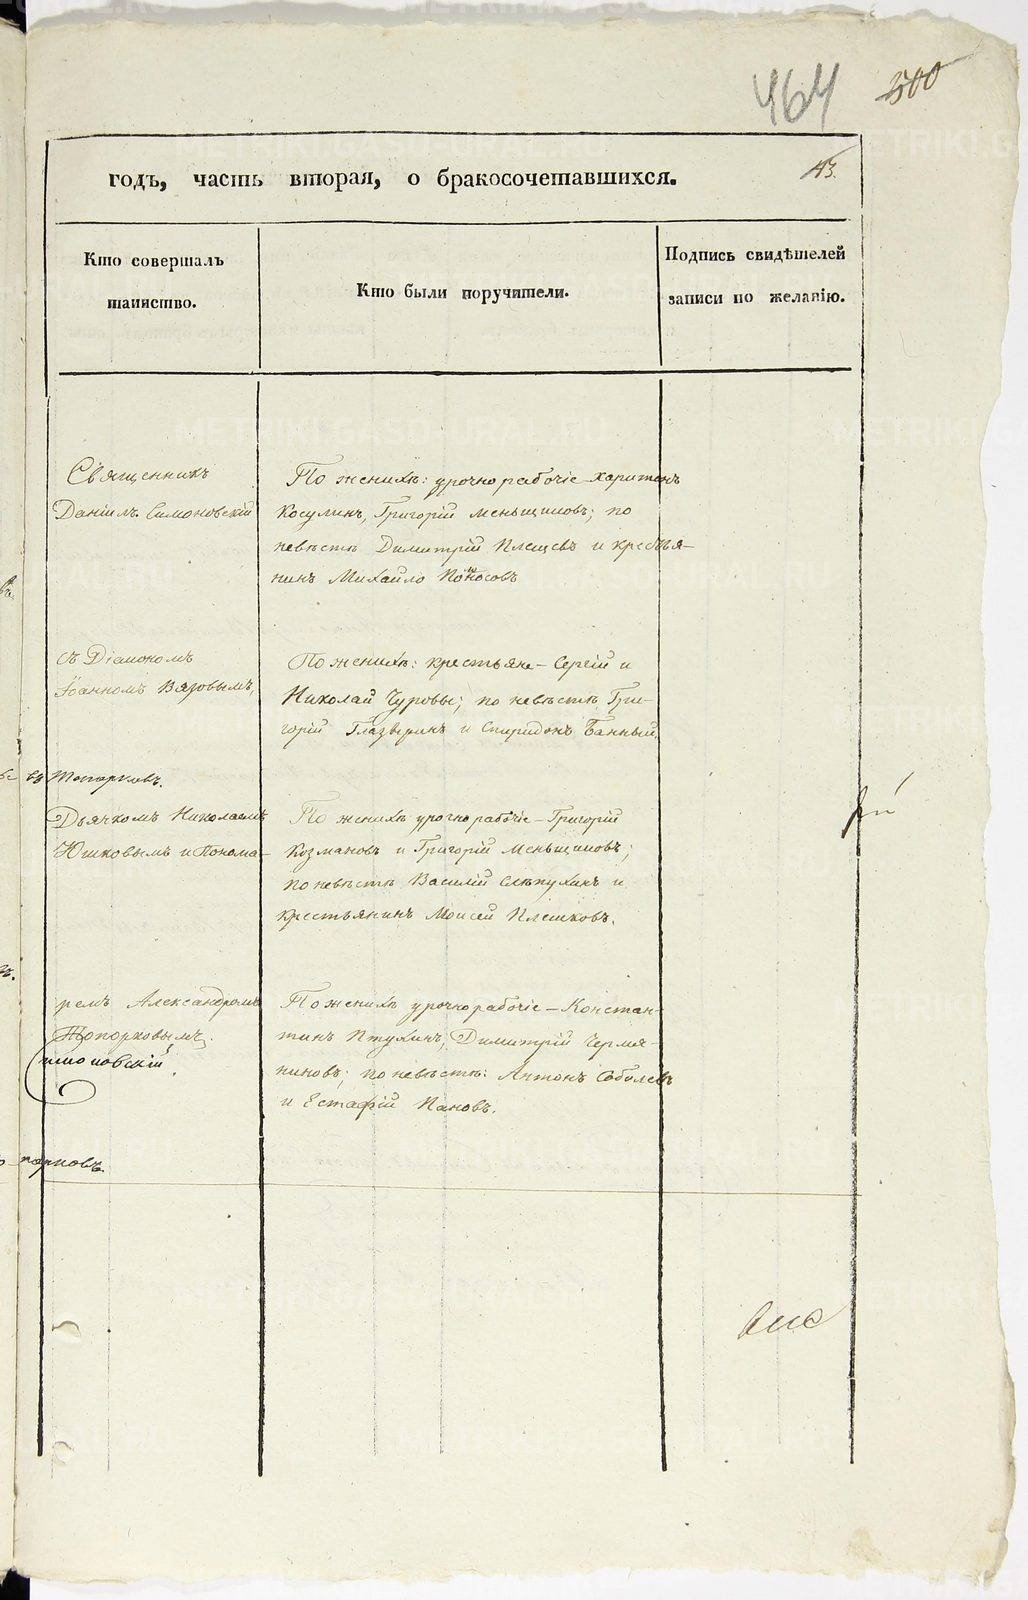 464
500
годъ, часть вторая, о бракосочетавшихся.
43.
Кто совершалъ
таинство.
Кто были поручители.
Подпись свидѣтелей
записи по желанію.
Священникъ
Даніилъ Симоновскій
По женихѣ: урочнорабочіе Харитонъ
Косулинъ, Григорій Меньщиковъ; по
невѣстѣ Димитрій Плещевъ и крестья-
нинъ Михайло Поносовъ
съ Діакономъ
Іоанномъ Вязовымъ,
По женихѣ: крестьяне - Сергій и
Николай Чуровы; по невѣстѣ Гри-
горій Глазыринъ и Спиридонъ Банный.
въ Топорковъ.
Дьячкомъ Николаемъ
Юшковымъ и Понома-
По женихѣ урочнорабочіе - Григорій
Козмановъ и Григорій Меньщиковъ;
по невѣстѣ Василій Слѣпухинъ и
крестьянинъ Моисей Плешковъ.
ремъ Александромъ
Топорковымъ.
имоновскій.
По женихѣ урочнорабочіе - Констан-
тинъ Птухинъ, Димитрій Черемя-
ниновъ; по невѣстѣ: Антонъ Соболевъ
и Естафій Пановъ.
порковъ.